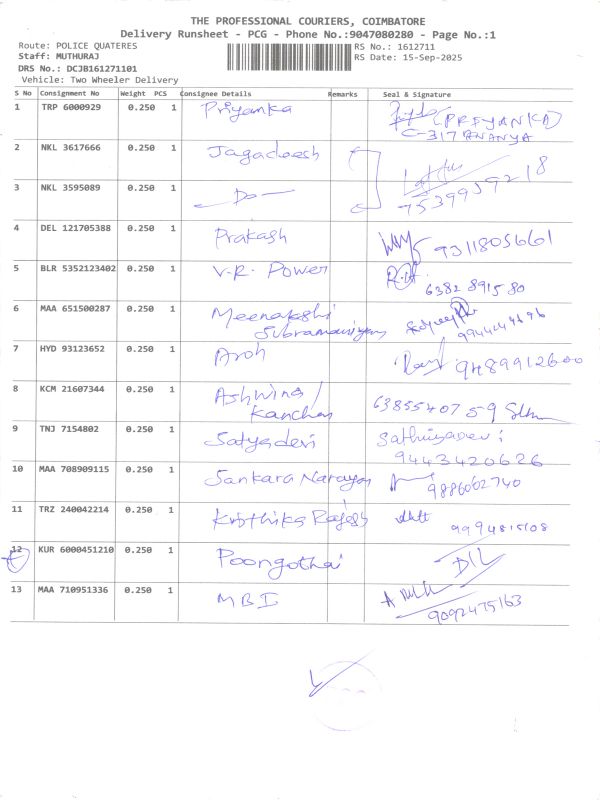 THE PROFESSIONAL COURIERS, COIMBATORE
Delivery Runsheet - PCG - Phone No.:9047080280 - Page No.:1
Route: POLICE QUATERES RS No.: 1612711
Staff: MUTHURAJ RS Date: 15-Sep-2025
DRS No.: DCJB161271101
Vehicle: Two Wheeler Delivery
S No Consignment No Weight PCS Consignee Details Remarks Seal & Signature
1 TRP 6000929 0.250 1 Priyanka (PRIYANKA)
C-317 ANANYA
2 NKL 3617666 0.250 1 Jagadeesh
3 NKL 3595089 0.250 1 — Do — 7539959218
4 DEL 121705388 0.250 1 Prakash 9311805661
5 BLR 5352123402 0.250 1 V.R. Power 6382891580
6 MAA 651500287 0.250 1 Meenakshi
Subramaniyam
7 HYD 93123652 0.250 1 Aroh 9489912600
8 KCM 21607344 0.250 1 Ashwina /
Kanchan 6385540759
9 TNJ 7154802 0.250 1 Satyadevi Sathiyadevi
9443420626
10 MAA 708909115 0.250 1 Sankara Narayan 9886062740
11 TRZ 240042214 0.250 1 Krithika Rajesh 9994815108
12 KUR 6000451210 0.250 1 Poongothai D/L
13 MAA 710951336 0.250 1 MBI
9092475163